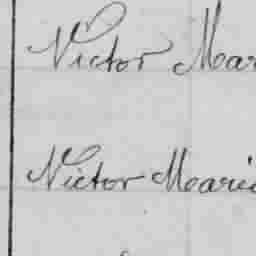 Victor Mar
Victor Marie